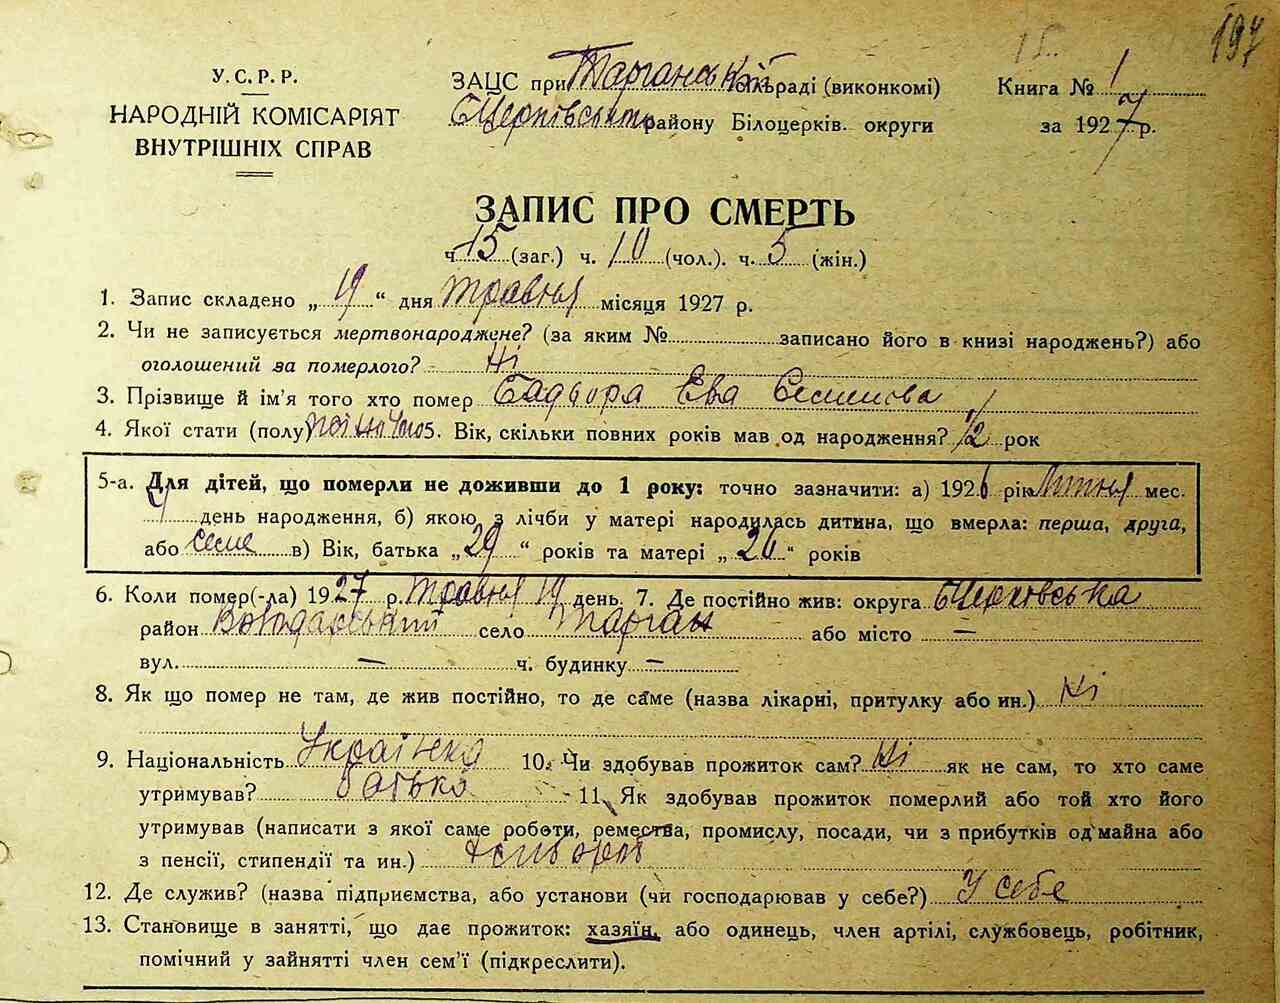 197
У.С.Р.Р.
НАРОДНІЙ КОМІСАРІЯТ
ВНУТРІШНІХ СПРАВ
ЗАЦС при Тарганській сільраді (виконкомі)
Б Церківського району Білоцерків. округи
Книга № 1
за 1927 р.
ЗАПИС ПРО СМЕРТЬ
ч. 15 (заг.) ч. 10 (чол.). ч. 5 (жін.)
1. Запис складено „ 19 “ дня травня місяця 1927 р.
2. Чи не записується мертвонароджене? (за яким № записано його в книзі народжень?) або
оголошений за померлого? Ні
3. Прізвище й ім'я того хто помер Ева
4. Якої стати (полу) жіночої 5. Вік, скільки повних років мав од народження? 1/2 рок
5-а. Для дітей, що померли не доживши до 1 року: точно зазначити: а) 1926 рік мес.
день народження, б) якою з лічби у матері народилась дитина, що вмерла: перша, друга,
або в) Вік, батька „ 29 “ років та матері „ 26 “ років
6. Коли помер(-ла) 1927 р. травня 19 день. 7. Де постійно жив: округа БЦерківська
район Володарський село Тарган або місто —
вул. — ч. будинку —
8. Як що помер не там, де жив постійно, то де саме (назва лікарні, притулку або ин.) Ні
9. Національність Українка 10. Чи здобував прожиток сам? Ні як не сам, то хто саме
утримував? батько 11. Як здобував прожиток померлий або той хто його
утримував (написати з якої саме роботи, ремества, промислу, посади, чи з прибутків од майна або
з пенсії, стипендії та ин.) хлібороб
12. Де служив? (назва підприємства, або установи (чи господарював у себе?) У себе
13. Становище в занятті, що дає прожиток: хазяїн, або одинець, член артілі, службовець, робітник,
помічний у зайнятті член сем'ї (підкреслити).